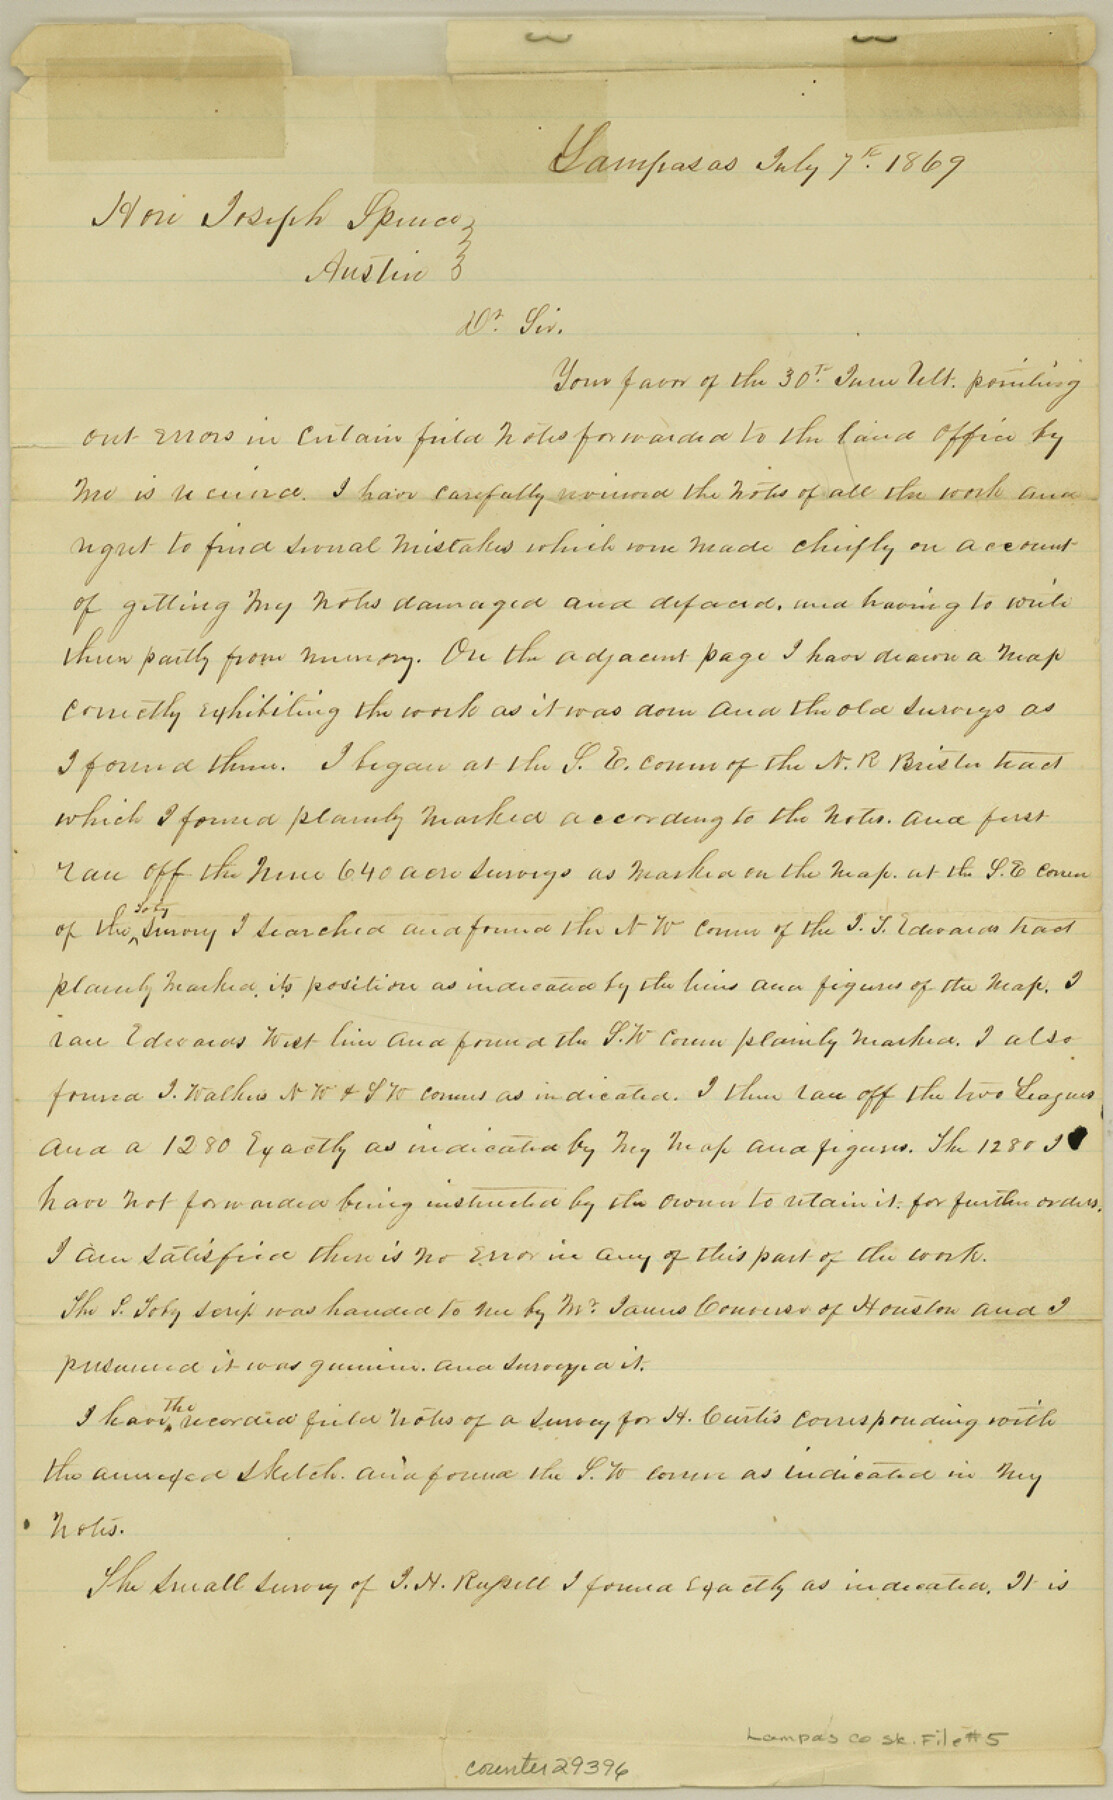 Lampasas July 7th. 1869
Hon Joseph Spence
Austin
Dr. Sir.
Your favor of the 30th. June Ult. pointing
out errors in certain field notes forwarded to the land office by
me is received. I have carefully reviewed the notes of all the work and
regret to find several mistakes which were made chiefly on account
of getting my notes damaged and defaced, and having to write
them partly from memory. On the adjacent page I have drawn a map
correctly exhibiting the work as it was done and the old surveys as
I found them. I began at the S. E. corner of the N. R Brister tract
which I found plainly marked according to the notes. and first
ran off the nine 640 acre surveys as marked on the map. at the S. E corner
of the Toby survey I searched and found the N W corner of the J. T. Edwards tract
plainly marked, its position as indicated by the lines and figures of the map. I
ran Edwards West line and found the S. W corner plainly marked. I also
found J. Walkers N W & S W corners as indicated. I then ran off the two Leagues
and a 1280 Exactly as indicated by my map and figures. The 1280 I
have not forwarded being instructed by the owner to retain it for further orders.
I am satisfied there is no error in any of this part of the work.
The S. Toby scrip was handed to me by Mr. James Converse of Houston and I
presumed it was genuine. and surveyed it.
I have the recorded field notes of a survey for H. Curtis corresponding with
the annexed sketch. and found the S. W corner as indicated in my
notes.
The small survey of J. H. Russell I found exactly as indicated. It is
Lampas co sk. File #5
counter 29396